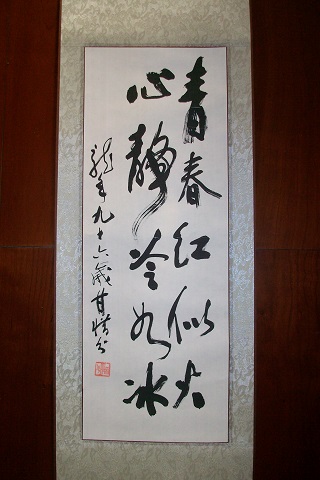 青春红似火
心静冷如冰
龙年九十六岁甘惜分